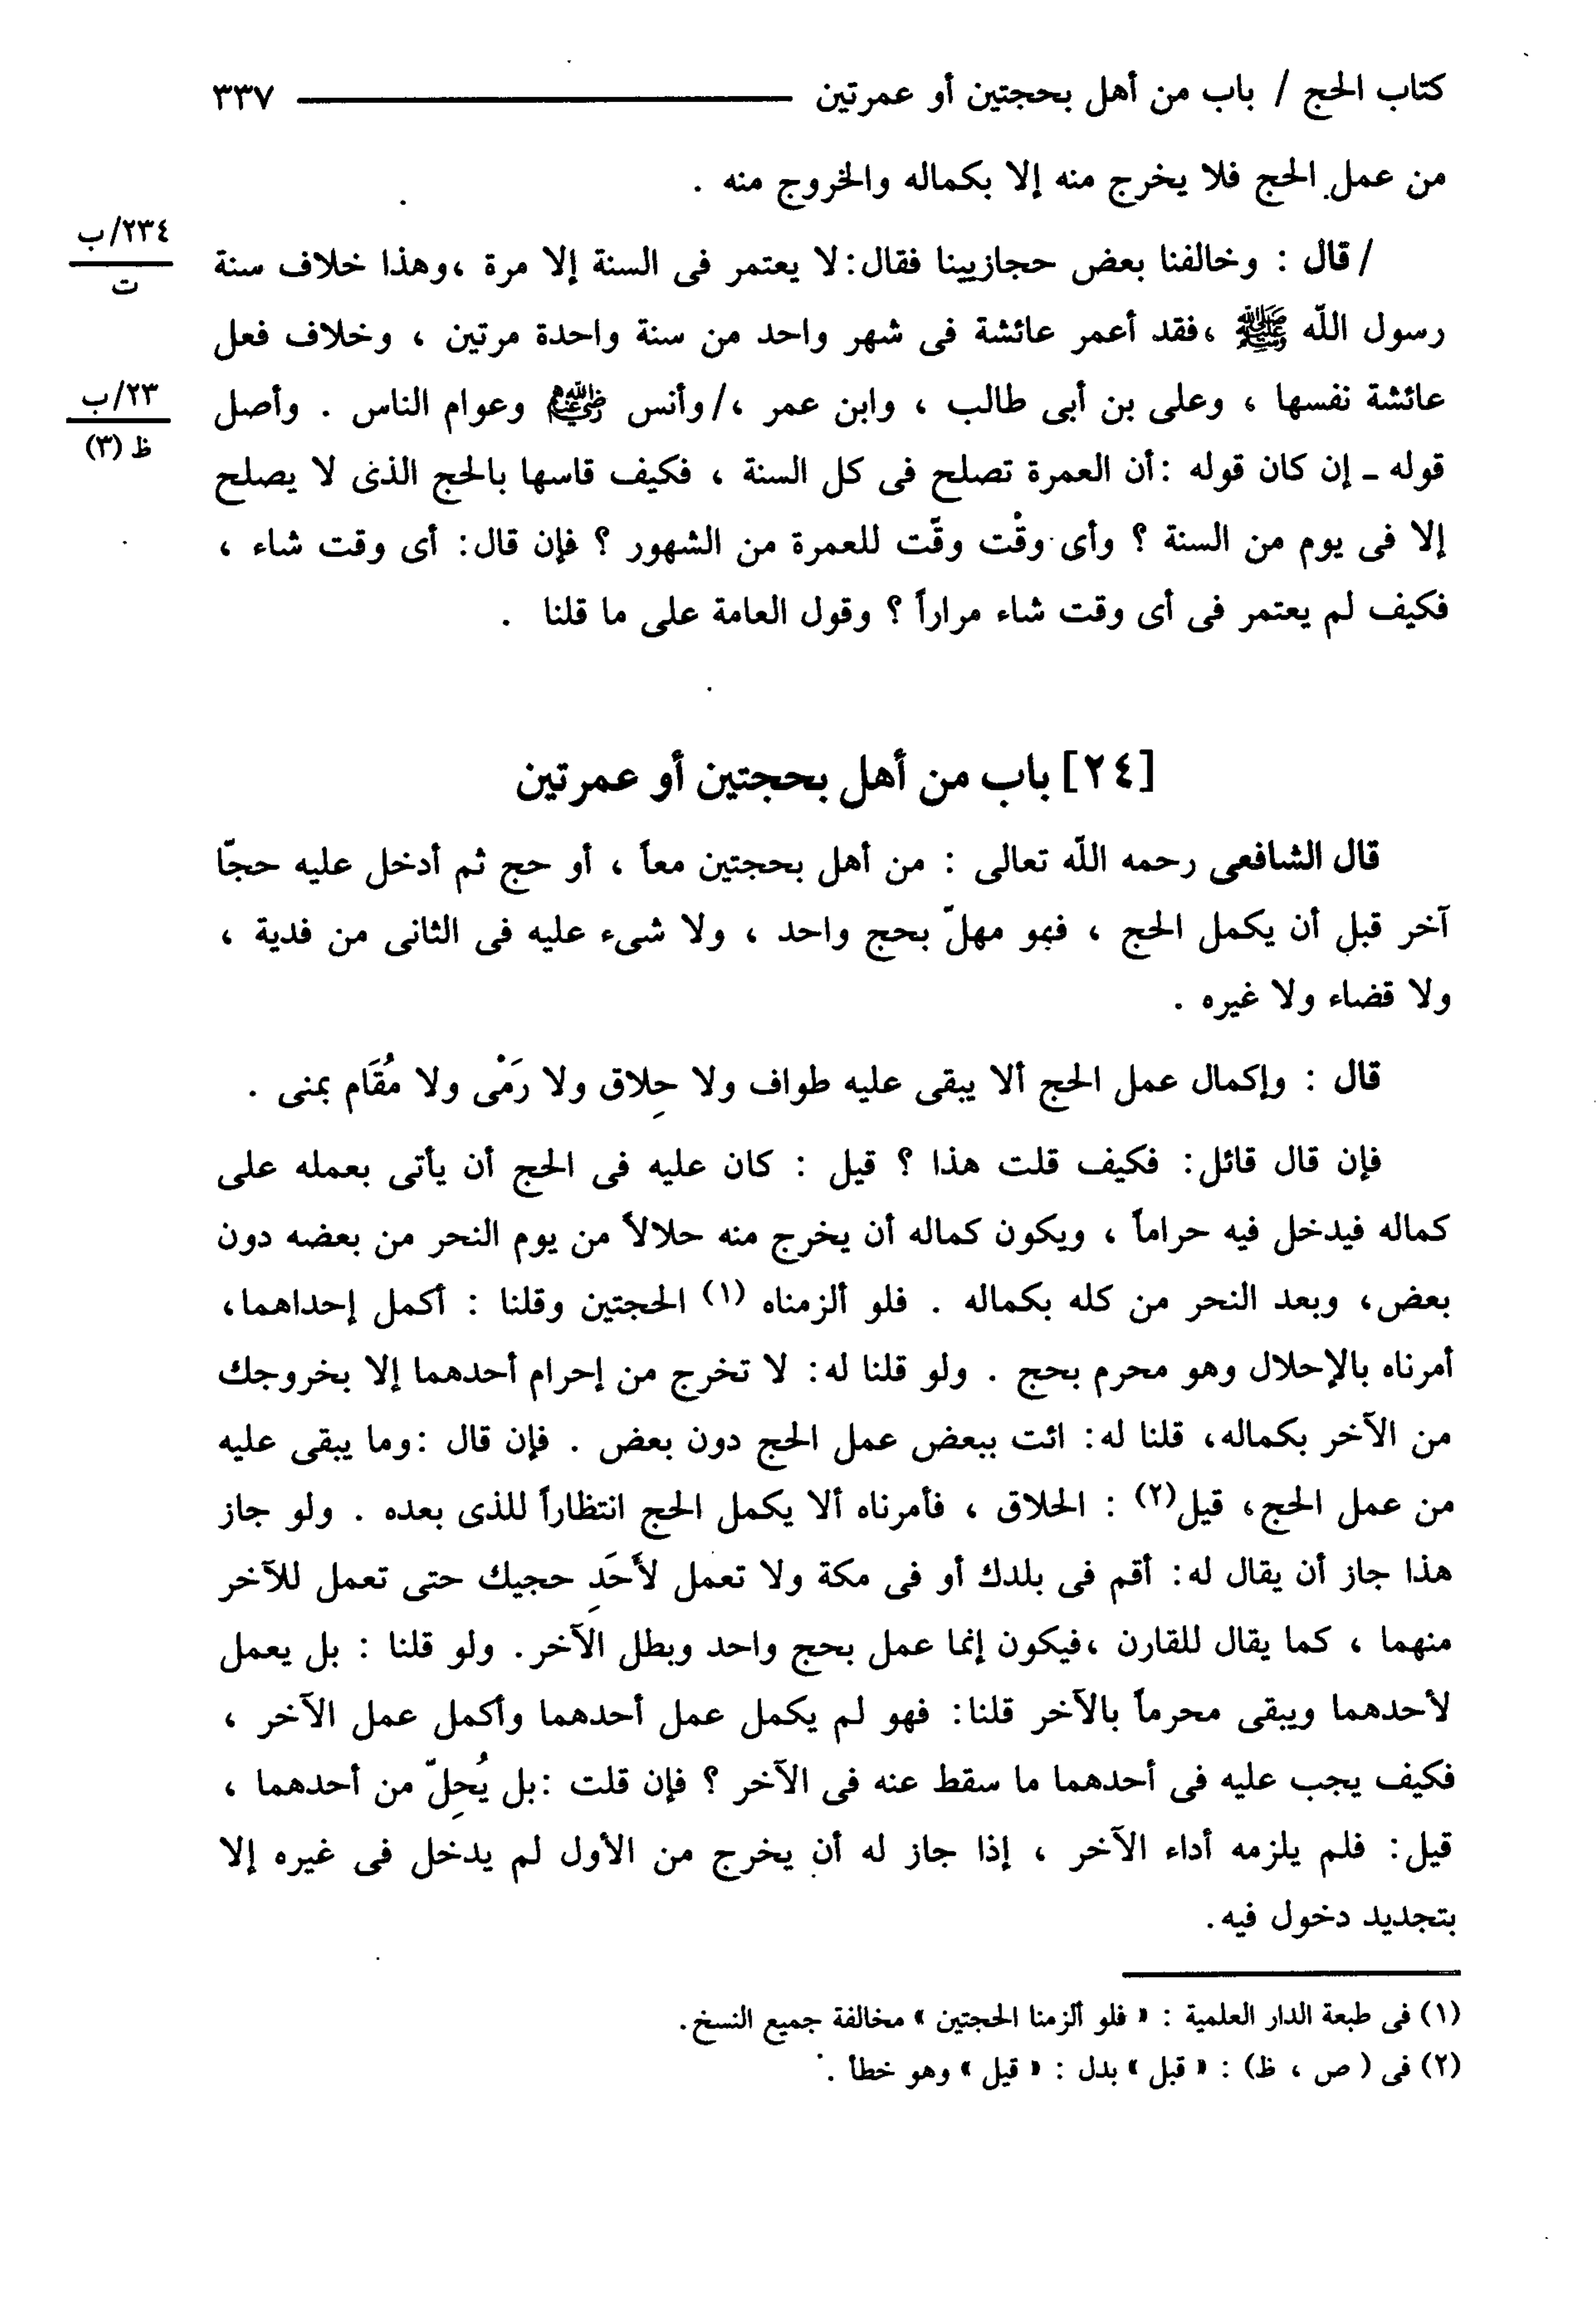 كتاب الحج / باب من أهل بحجتين أو عمرتين ٣٣٧
من عمل الحج فلا يخرج منه إلا بكماله والخروج منه .
٢٣٤/ب
ت
/ قال : وخالفنا بعض حجازيينا فقال: لا يعتمر فى السنة إلا مرة ،وهذا خلاف سنة
رسول اللّه ﷺ ،فقد أعمر عائشة فى شهر واحد من سنة واحدة مرتين ، وخلاف فعل
٢٣/ب
ظ (٣)
عائشة نفسها ، وعلى بن أبى طالب ، وابن عمر ،/وأنس رضي الله عنهم وعوام الناس . وأصل
قوله ـ إن كان قوله :أن العمرة تصلح فى كل السنة ، فكيف قاسها بالحج الذى لا يصلح
إلا فى يوم من السنة ؟ وأى وقْت وقّت للعمرة من الشهور ؟ فإن قال: أى وقت شاء ،
فكيف لم يعتمر فى أى وقت شاء مراراً ؟ وقول العامة على ما قلنا .
[٢٤] باب من أهل بحجتين أو عمرتين
قال الشافعى رحمه اللّه تعالى : من أهل بحجتين معاً ، أو حج ثم أدخل عليه حجّا
آخر قبل أن يكمل الحج ، فهو مهلّ بحج واحد ، ولا شىء عليه فى الثانى من فدية ،
ولا قضاء ولا غيره .
قال : وإكمال عمل الحج ألا يبقى عليه طواف ولا حِلاق ولا رَمْى ولا مُقَام بمنى .
فإن قال قائل: فكيف قلت هذا ؟ قيل : كان عليه فى الحج أن يأتى بعمله على
كماله فيدخل فيه حراماً ، ويكون كماله أن يخرج منه حلالاً من يوم النحر من بعضه دون
بعض، وبعد النحر من كله بكماله . فلو ألزمناه (١) الحجتين وقلنا : أكمل إحداهما،
أمرناه بالإحلال وهو محرم بحج . ولو قلنا له: لا تخرج من إحرام أحدهما إلا بخروجك
من الآخر بكماله، قلنا له: ائت ببعض عمل الحج دون بعض . فإن قال :وما يبقى عليه
من عمل الحج، قيل(٢) : الحلاق ، فأمرناه ألا يكمل الحج انتظاراً للذى بعده . ولو جاز
هذا جاز أن يقال له: أقم فى بلدك أو فى مكة ولا تعمل لأَحَدِ حجيك حتى تعمل للآخر
منهما ، كما يقال للقارن ،فيكون إنما عمل بحج واحد وبطل الآخر. ولو قلنا : بل يعمل
لأحدهما ويبقى محرماً بالآخر قلنا: فهو لم يكمل عمل أحدهما وأكمل عمل الآخر ،
فكيف يجب عليه فى أحدهما ما سقط عنه فى الآخر ؟ فإن قلت :بل يُحِلّ من أحدهما ،
قيل: فلم يلزمه أداء الآخر ، إذا جاز له أن يخرج من الأول لم يدخل فى غيره إلا
بتجديد دخول فيه.
(١) فى طبعة الدار العلمية : « فلو ألزمنا الحجتين » مخالفة جميع النسخ.
(٢) فى ( ص ، ظ) : « قبل » بدل : « قيل » وهو خطأ .